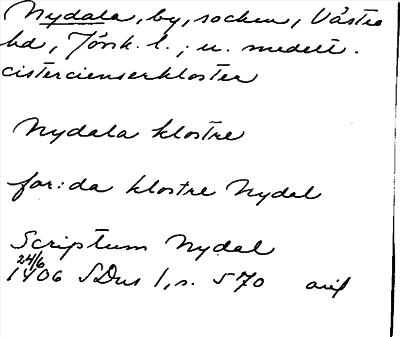 Nydala, by, socken, Västra
hd, Jönk. l.; u. medelt.
cistercienserkloster
Nydala klostre
for:da klostre Nydal
Scriptum Nydal
24/6
1406 SDns 1, s. 570 avs